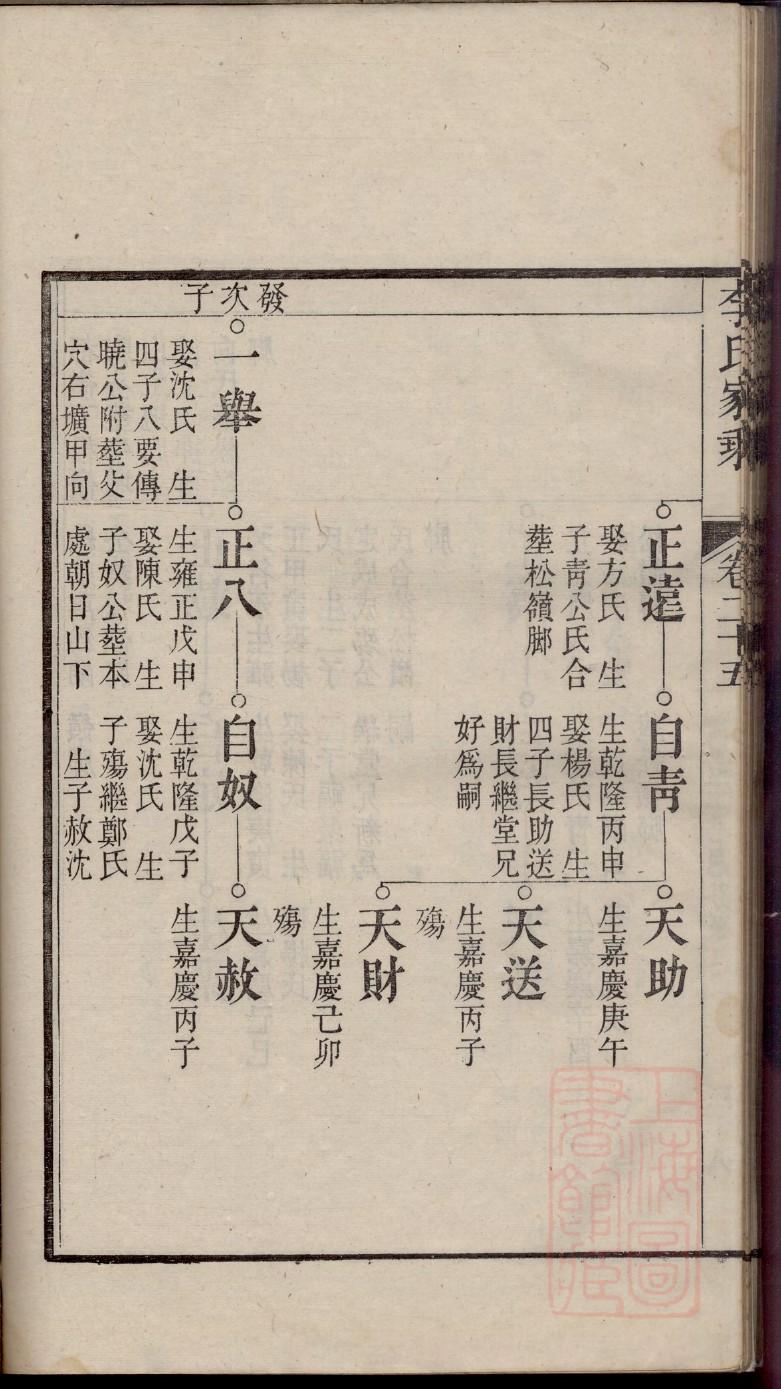 李氏家乘
卷二十五
正遠
娶方氏　生
子靑公氏合
塟松嶺脚
自靑
生乾隆丙申
娶楊氏　生
四子長助送
財長繼堂兄
好爲嗣
天助
生嘉慶庚午
殤
天送
生嘉慶丙子
殤
天財
生嘉慶己卯
殤
發次子
一舉
娶沈氏　生
四子八要傳
曉公附塟父
穴右壙甲向
正八
生雍正戊申
娶陳氏　生
子奴公塟本
處朝日山下
自奴
生乾隆戊子
娶沈氏　生
子殤繼鄭氏
生子赦沈
天赦
生嘉慶丙子
上海圖
書館藏